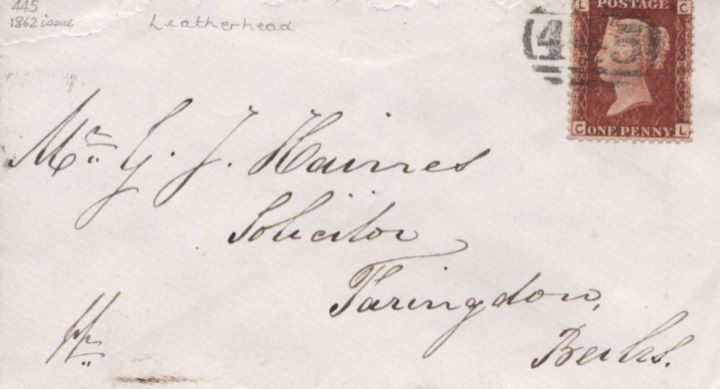 445
1862 issue
Leatherhead
L C
POSTAGE
445
C L
ONE PENNY
Mr G. J. Haines
Solicitor
Faringdon,
Berks.